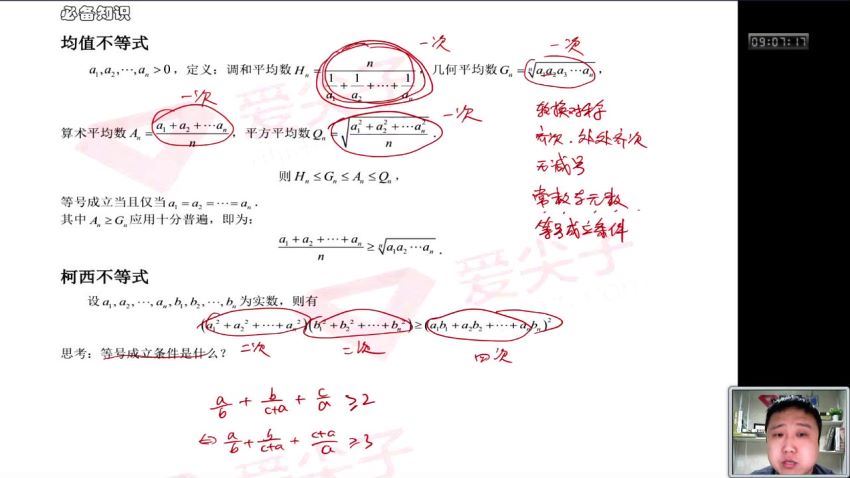 必备知识
均值不等式
a₁,a₂,⋯,aₙ>0，定义：调和平均数 Hₙ = n/(1/a₁+1/a₂+⋯+1/aₙ)，几何平均数 Gₙ = ⁿ√(a₁a₂a₃⋯aₙ)，
一次 一次
一次 一次
算术平均数 Aₙ = (a₁+a₂+⋯aₙ)/n，平方平均数 Qₙ = √((a₁²+a₂²+⋯aₙ²)/n).
则 Hₙ ≤ Gₙ ≤ Aₙ ≤ Qₙ，
等号成立当且仅当 a₁ = a₂ = ⋯ = aₙ.
其中 Aₙ ≥ Gₙ 应用十分普遍，即为：
(a₁+a₂+⋯+aₙ)/n ≥ ⁿ√(a₁a₂⋯aₙ).
轮换对称
齐次．处处齐次
无减号
常数与元数
等号成立条件
柯西不等式
设 a₁,a₂,⋯,aₙ,b₁,b₂,⋯,bₙ 为实数，则有
(a₁²+a₂²+⋯+aₙ²)(b₁²+b₂²+⋯+bₙ²)≥(a₁b₁+a₂b₂+⋯+aₙbₙ)²
思考：等号成立条件是什么？
二次 二次 四次
a/b + b/(c+a) + c/a ≥2
⇔ a/b + b/(c+a) + (c+a)/a ≥3
09:07:17
爱尖子
爱尖子